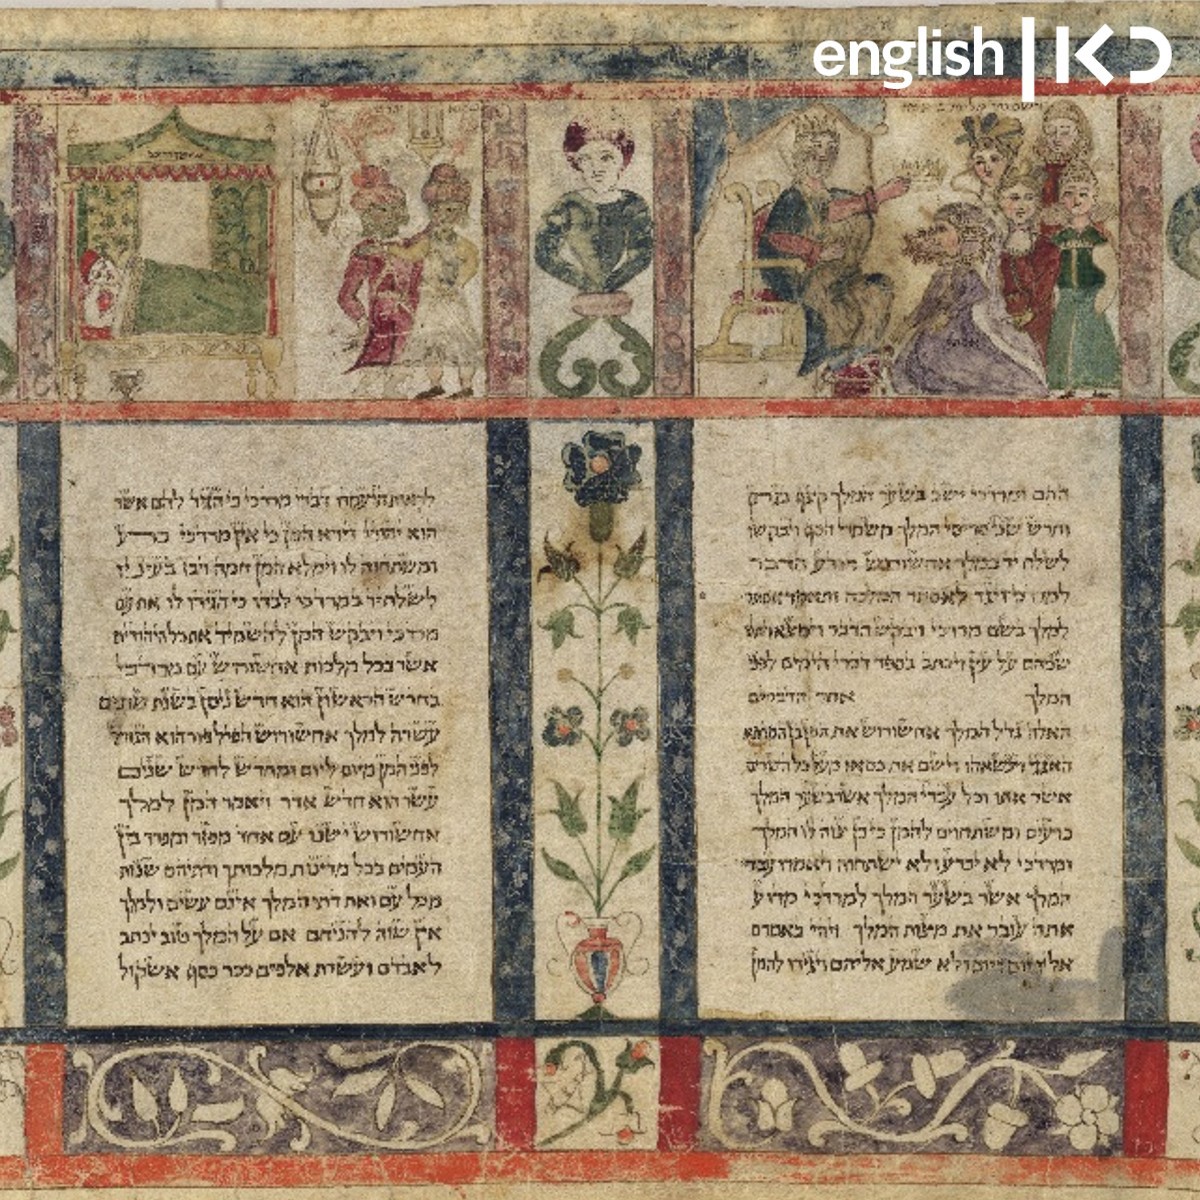 english | כאן
ההם ומרדכי ישב בשער המלך קצף בגתן
ותרש שני סריסי המלך משמרי הסף ויבקשו
לשלח יד במלך אחשורוש ויודע הדבר
למרדכי ויגד לאסתר המלכה ותאמר אסתר
למלך בשם מרדכי ויבקש הדבר וימצא ויתלו
שניהם על עץ ויכתב בספר דברי הימים לפני
המלך אחר הדברים
האלה גדל המלך אחשורוש את המן בן המדתא
האגגי וינשאהו וישם את כסאו מעל כל השרים
אשר אתו וכל עבדי המלך אשר בשער המלך
כרעים ומשתחוים להמן כי כן צוה לו המלך
ומרדכי לא יכרע ולא ישתחוה ויאמרו עבדי
המלך אשר בשער המלך למרדכי מדוע
אתה עובר את מצות המלך ויהי באמרם
אליו יום ויום ולא שמע אליהם ויגידו להמן
לראות היעמדו דברי מרדכי כי הגיד להם אשר
הוא יהודי וירא המן כי אין מרדכי כרע
ומשתחוה לו וימלא המן חמה ויבז בעיניו
לשלח יד במרדכי לבדו כי הגידו לו את עם
מרדכי ויבקש המן להשמיד את כל היהודים
אשר בכל מלכות אחשורוש עם מרדכי
בחדש הראשון הוא חדש ניסן בשנת שתים
עשרה למלך אחשורוש הפיל פור הוא הגורל
לפני המן מיום ליום ומחדש לחדש שנים
עשר הוא חדש אדר ויאמר המן למלך
אחשורוש ישנו עם אחד מפזר ומפרד בין
העמים בכל מדינות מלכותך ודתיהם שנות
מכל עם ואת דתי המלך אינם עשים ולמלך
אין שוה להניחם אם על המלך טוב יכתב
לאבדם ועשרת אלפים ככר כסף אשקול